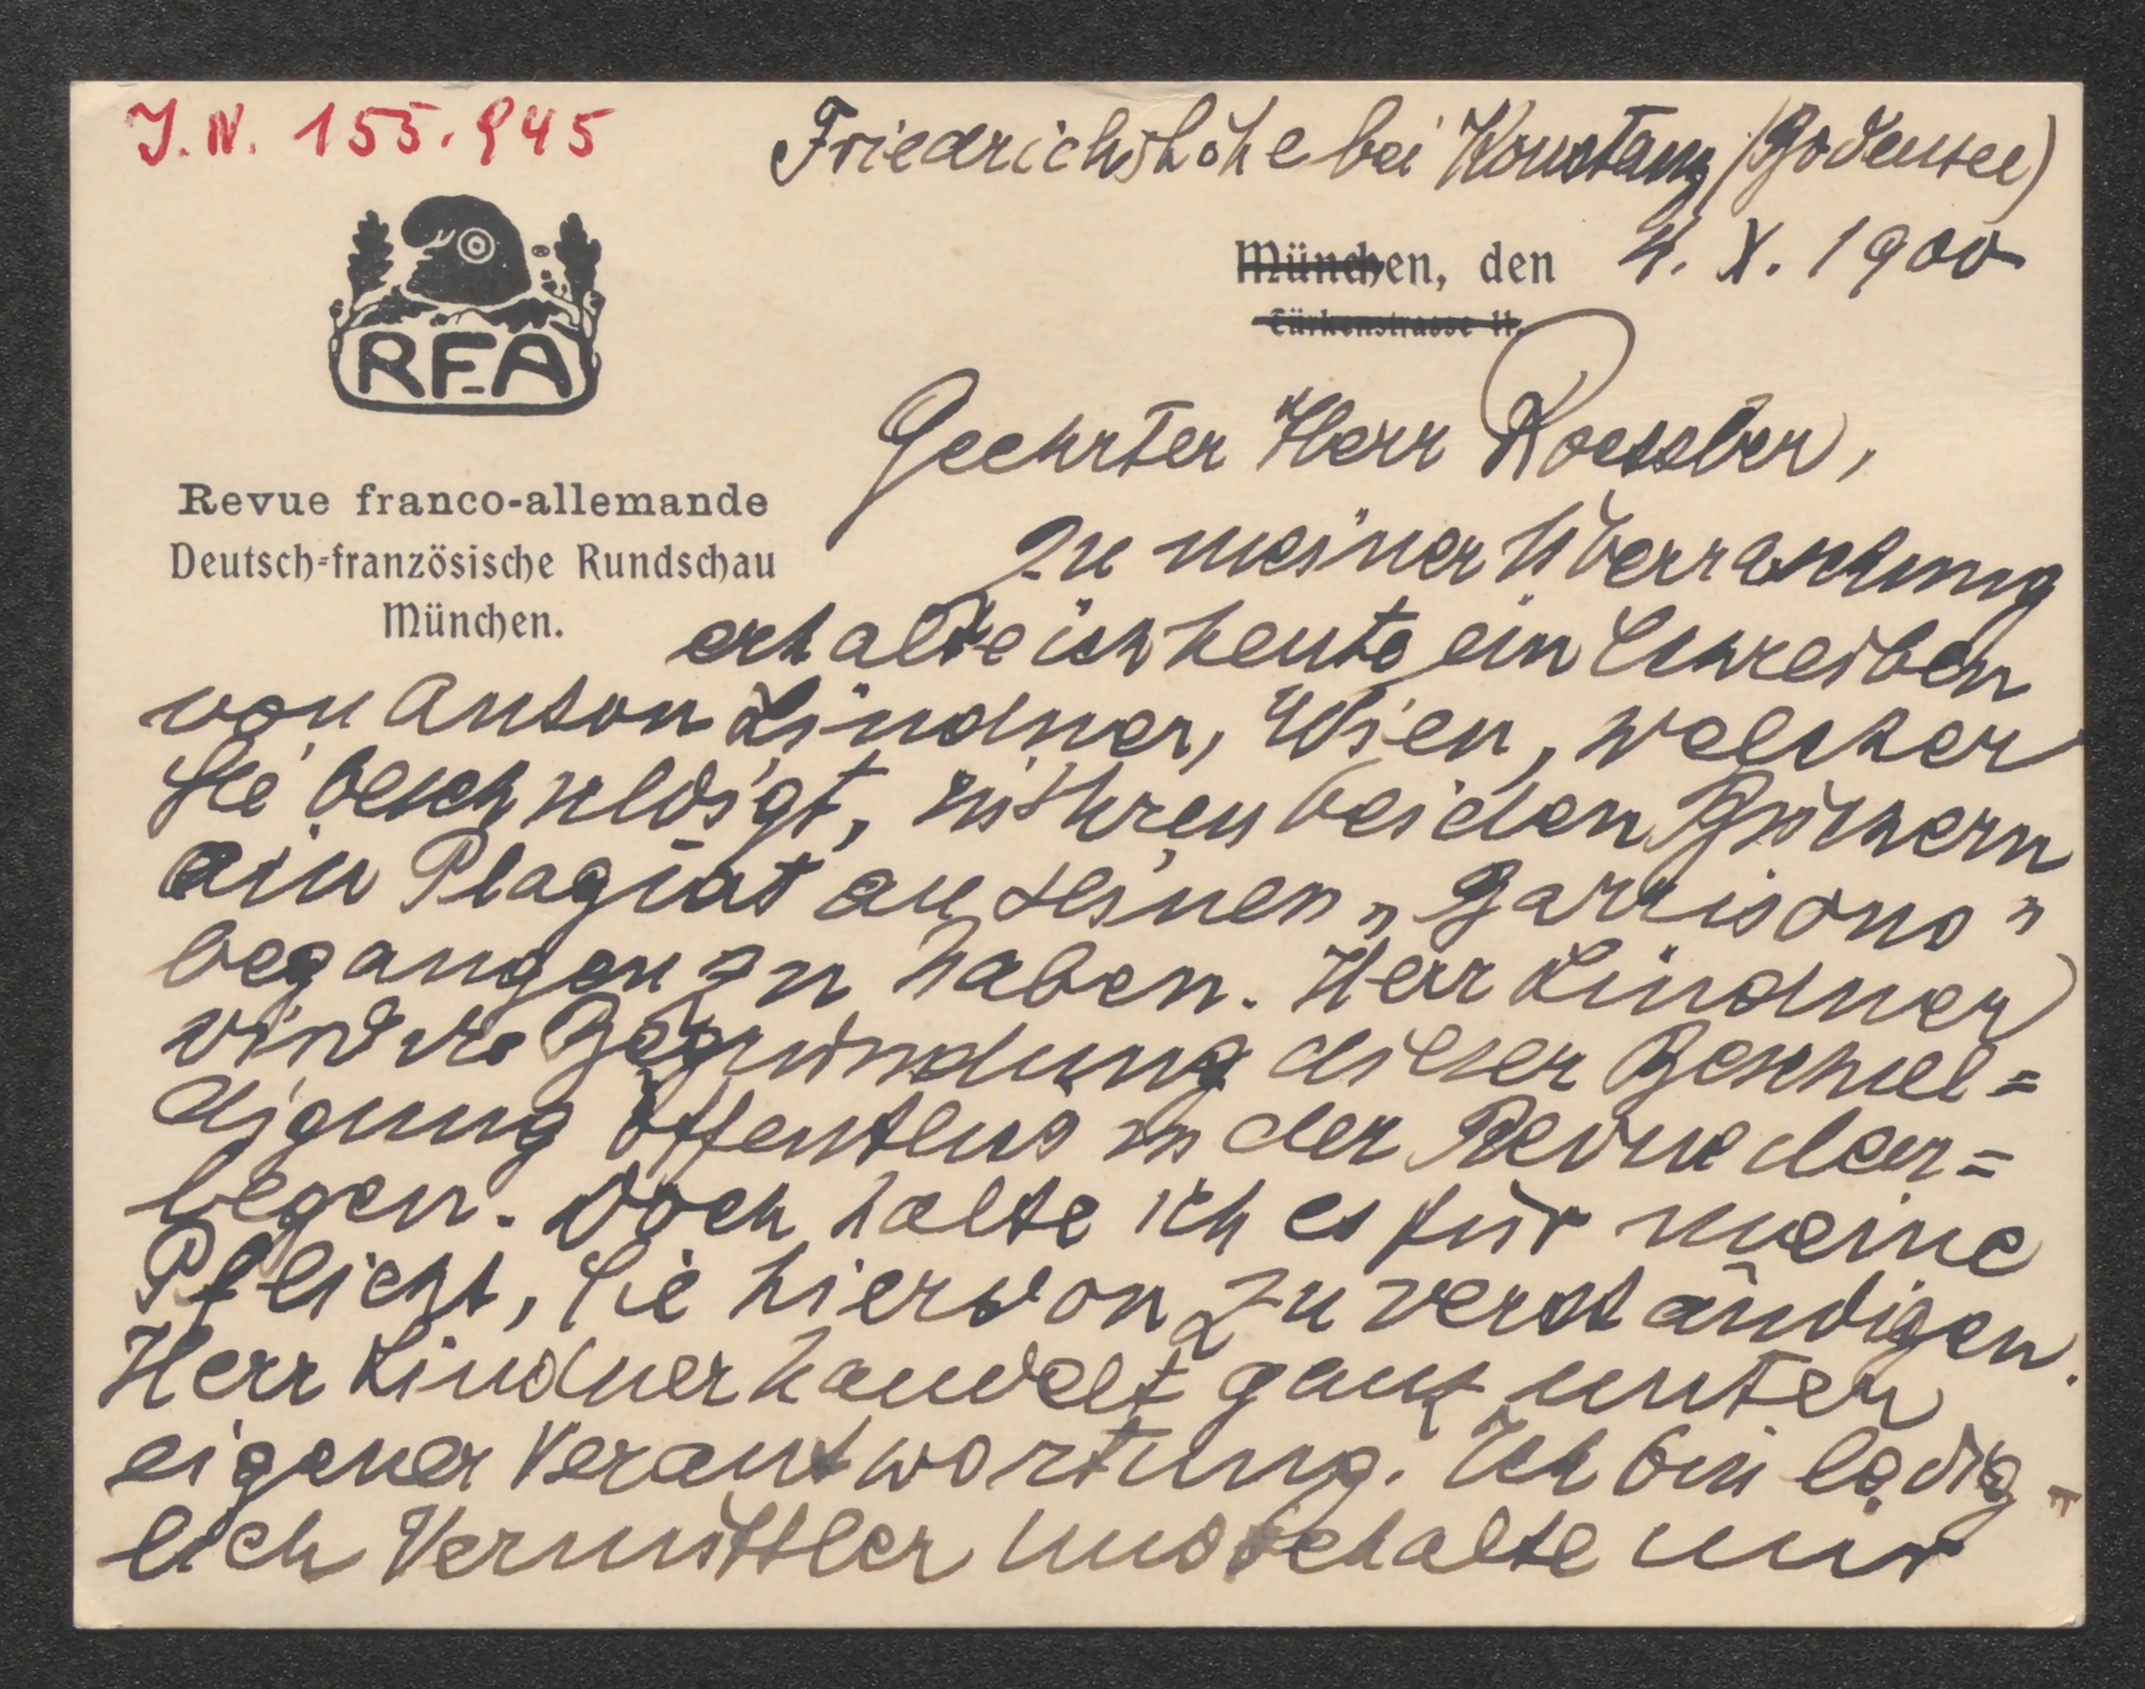 J.N. 155.945
Friedrichshöhe bei Konstanz (Bodensee)
München, den 4. X. 1900
Türkenstrasse 11.
RFA
Geehrter Herr Roessler,
Revue franco-allemande
Deutsch-französische Rundschau
München.
zu meiner Überraschung
erhalte ich heute ein Schreiben
von Anton Lindner, Wien, welcher
Sie beschuldigt, in Ihren beiden Büchern
ein Plagiat an seinen „Barrisons"
begangen zu haben. Herr Lindner
wird die Begründung dieser Beschul=
digung öffentlich in der Revue dar=
legen. Doch halte ich es für meine
Pflicht, Sie hiervon zu verständigen.
Herr Lindner handelt ganz unter
eigener Verantwortung. Ich bin ledig-
lich Vermittler und behalte mir